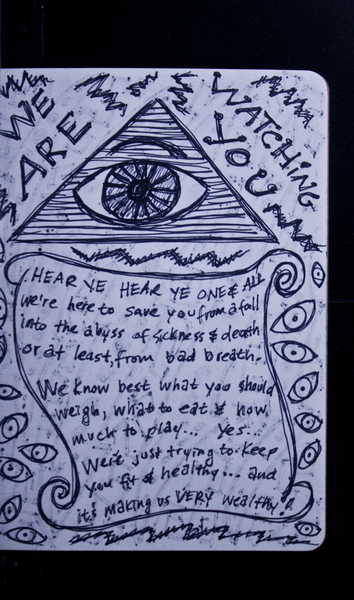 WE ARE WATCHING YOU
HEAR YE HEAR YE ONE & ALL
we're here to save you from a fall
into the abyss of sickness & death
or at least, from bad breath.
We know best what you should
weigh, what to eat & how
much to play... Yes...
We're just trying to keep
you fit & healthy... and
it's making us VERY wealthy!